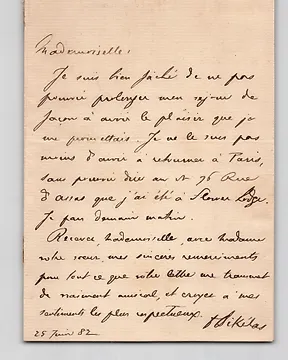 Mademoiselle,
Je suis bien fâché de ne pas
pouvoir prolonger mon séjour de
façon à avoir le plaisir que je
me promettais. Je ne le suis pas
moins d'avoir à retourner à Paris,
sans pouvoir dire au Nº 76 Rue
d'Assas que j'ai été à Lodge.
Je pars demain matin.
Recevez, Mademoiselle, avec Madame
votre sœur mes sincères remerciements
pour tout ce que votre lettre me transmet
de vraiment amical, et croyez à mes
sentiments les plus respectueux.
D Bikélas
25 Juin 82